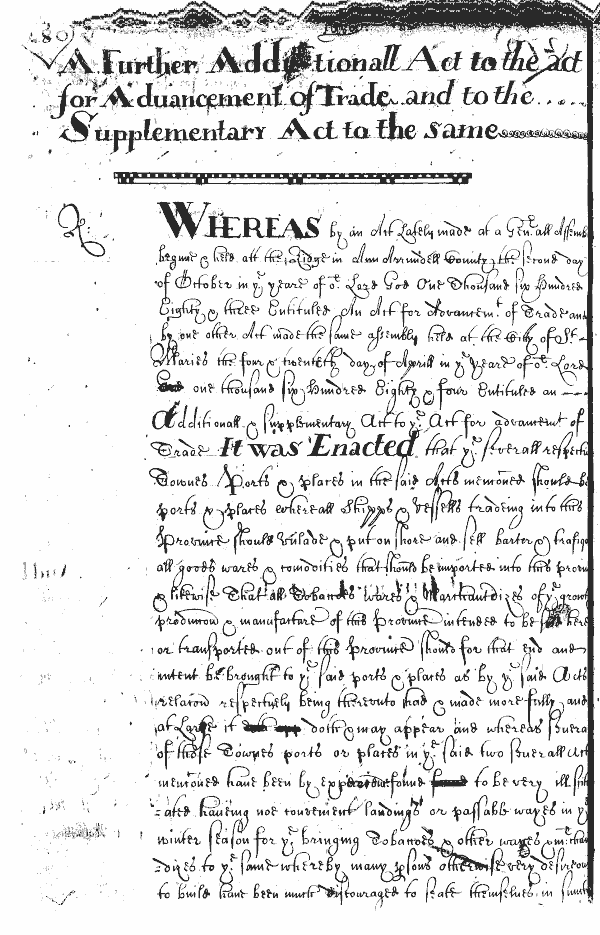 A Further Additionall Act to the act
for Aduancement of Trade and to the....
Supplementary Act to the same
WHEREAS by an Act Lately made at a Gen:all Assemb
begune & held att the Ridge in Ann Arrundell County, the second day
of October in ye yeare of or Lord God One Thousand six Hundred
Eighty & three Entituled An Act for Advancemt of Trade and
by one other Act made the same assembly held at the Citty of St
Maries the four & twentéth day of Aprill in ye yeare of or Lord
one thousand six Hundred Eighty & four Entituled an
Additionall & supplementary Act to ye Act for advancment of
Trade It was Enacted that ye severall respecti
Townes Ports & places in the said Acts menconed should be
ports & places whereall Shipps & Vessells tradeing into this
Province should unlade & put on shore and sell barter & trafiqe
all goods wares & comodities that should be imported into this provin
& likewise That all Tobaccoes Wares & Marchandizes of ye growt
produccon & manufacture of this Province intended to be sold here
or transported out of this Province should for that end and
intent be brought to ye said ports & places as by ye said Acts
relacon respectively being thereunto had & made more fully and
at Large it doth & may appear and whereas severa
of those Townes ports or places in ye said two severall Act
menconed have been by experience found to be very ill situ
ated haveing noe convenient landings or passable wayes in ye
winter season for ye bringing Tobaccoes & other wares & mrchan
dizes to ye same whereby many psons otherwise very desireous
to build have been much discouraged to seate themselves in